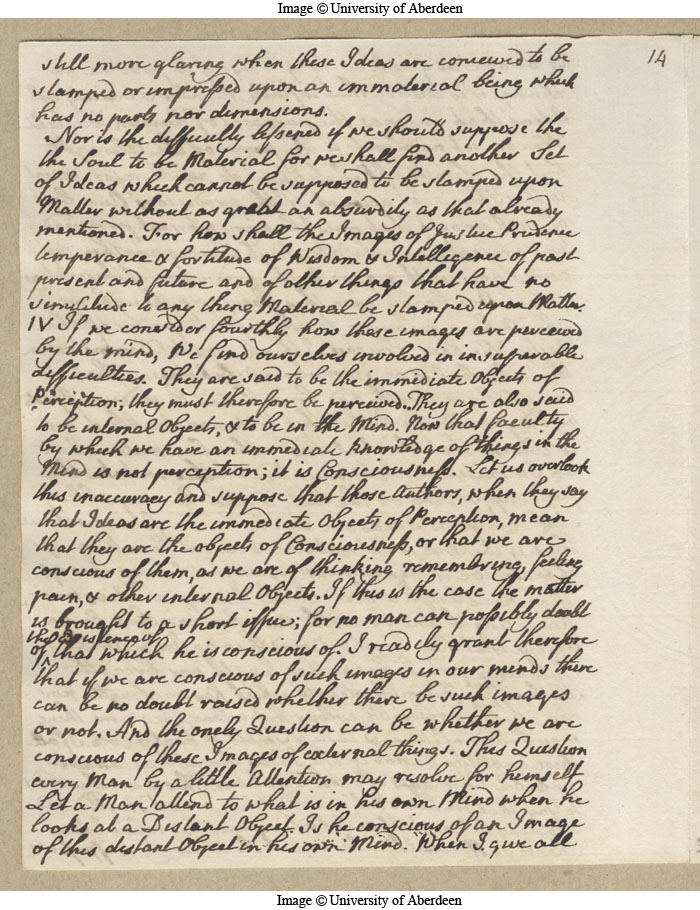 Image © University of Aberdeen
14
still more glaring when these Ideas are conceived to be
stamped or impressed upon an immaterial being which
has no parts nor dimensions.
Nor is the difficulty lessened if we should suppose the
the Soul to be Material for we shall find another Set
of Ideas which cannot be supposed to be stamped upon
Matter without as great an absurdity as that already
mentioned. For how shall the Images of Justice Prudence
temperance & fortitude of Wisdom & Intelligence of past
present and future and of other things that have no
similitude to any thing Material be stamped upon Matter.
IV If we consider fourthly how these images are perceived
by the mind, We find ourselves involved in insuperable
difficulties. They are said to be the immediate Objects of
Perception; they must therefore be perceived. They are also said
to be internal Objects, & to be in the Mind. Now that faculty
by which we have an immediate knowledge of things in the
Mind is not perception; it is Consciousness. Let us overlook
this inaccuracy and suppose that those Authors, when they say
that Ideas are the immediate Objects of Perception, mean
that they are the objects of Consciousness, or that we are
conscious of them, as we are of thinking remembring, feeling
pain, & other internal Objects. If this is the case the matter
is brought to a short issue; for no man can possibly doubt
the existence of
of that which he is conscious of. I readily grant therefore
that if we are conscious of such images in our minds there
can be no doubt raised whether there be such images
or not. And the onely Question can be whether we are
conscious of these Images of external things. This Question
every Man by a little Attention may resolve for himself
Let a Man attend to what is in his own Mind when he
looks at a Distant Object. Is he conscious of an Image
of this distant Object in his own Mind. When I give all
Image © University of Aberdeen